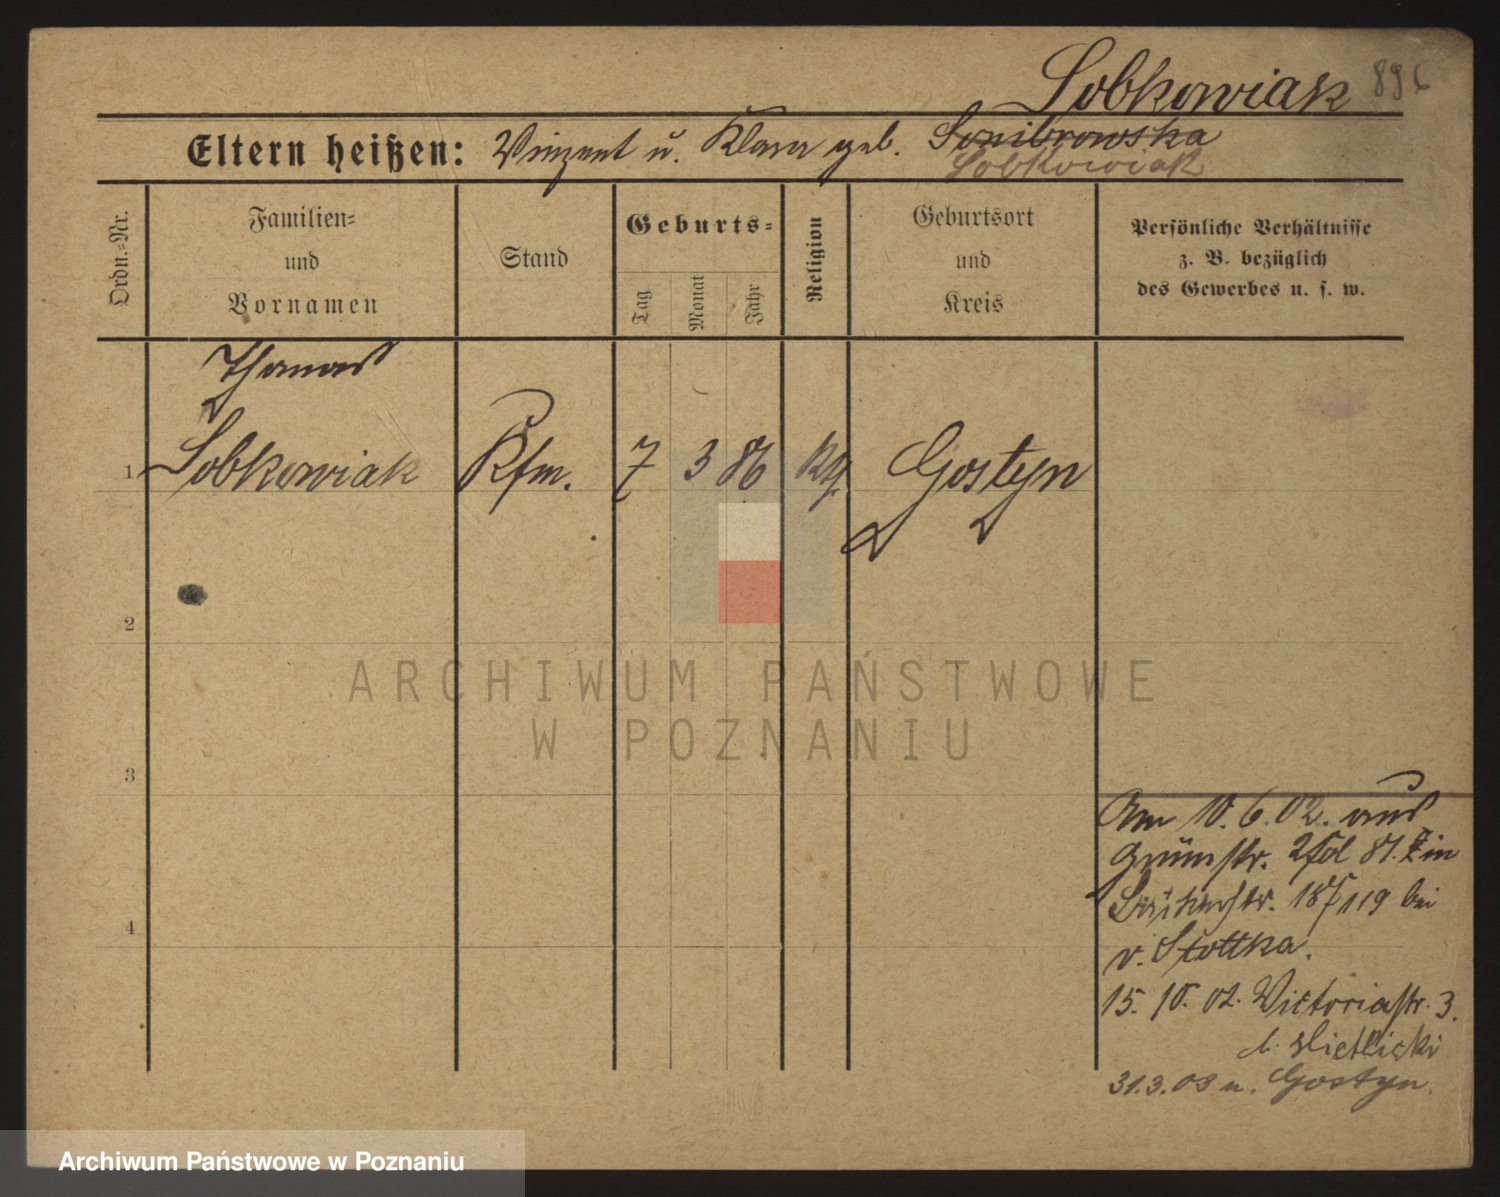 Sobkowiak 896
Eltern heißen: Vinzent u. Klara geb. Sombrowska
Sobkowiak
Ordn.-Nr.
Familien-
und
Vornamen
Stand
Geburts-
Tag
Monat
Jahr
Religion
Geburtsort
und
Kreis
Persönliche Verhältnisse
z. B. bezüglich
des Gewerbes u. s. w.
Thomas
1 Sobkowiak Kfm. 7 3 86 Gostyn
2
3
4
Am 10. 6. 02. aus
Grünstr. 2 in
bei
v. Stottka.
15. 10. 02. Victoriastr. 3.
b.
31.3.03 n. Gostyn.
ARCHIWUM PAŃSTWOWE
W POZNANIU
Archiwum Państwowe w Poznaniu